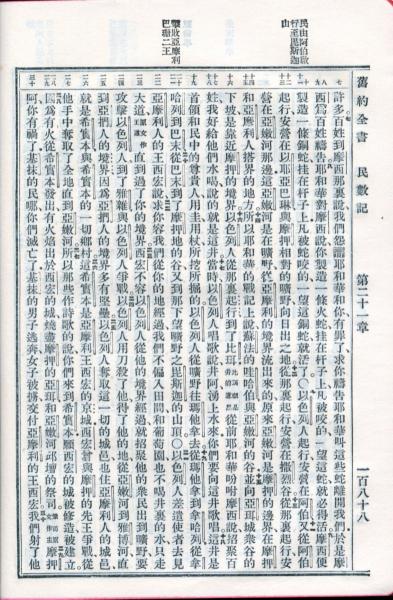 民由阿伯啟
行至毘斯迦
山
戰敗亞摩利
巴珊二王
舊約全書 民數記 第二十一章 一百八十八
許多百姓到摩西那裏說我們怨讟耶和華和你有罪了求你禱告耶和華叫這些蛇離開我們於是摩
西爲百姓禱告耶和華對摩西說你製造一條火蛇挂在杆子上凡被咬的一望這蛇就必得活摩西便
製造一條銅蛇挂在杆子上凡被蛇咬的一望這銅蛇就活了〇以色列人起行安營在阿伯又從阿伯
起行安營在以耶亞巴琳與摩押相對的曠野向日出之地從那裏起行安營在撒烈谷從那裏起行安
營在亞嫩河那邊這亞嫩河是在曠野從亞摩利的境界流出來的原來亞嫩河是摩押的邊界在摩押
和亞摩利人搭界的地方所以耶和華的戰記上說蘇法的哇哈伯與亞嫩河的谷並向亞珥城衆谷的
下坡是靠近摩押的境界以色列人從那裏行到了比珥比珥就是井的意思從前耶和華吩咐摩西說招聚百
姓我好給他們水喝說的就是這井當時以色列人唱歌說井阿湧上水來你們要向這井歌唱這井是
首領和民中的尊貴人用圭用杖所挖所掘的以色列人從曠野往瑪他拿去從瑪他拿到拿哈列從拿
哈列到巴末從巴末到了摩押地的谷又到那下望曠野之毘斯迦的山頂〇以色列人差遣使者去見
亞摩利人的王西宏說求你容我們從你的地經過我們不偏入田間和葡萄園也不喝井裏的水只走
大道原文作王道直到過了你的境界西宏不容以色列人從他的境界經過就招聚他的衆民出到曠野要
攻擊以色列人到了雅雜與以色列人爭戰以色列人用刀殺了他得了他的地從亞嫩河到雅博河直
到亞捫人的境界因爲亞捫人的境界多有堅壘以色列人奪取這一切的城邑也住亞摩利人的城邑
就是希實本與希實本的一切鄉村這希實本是亞摩利王西宏的京城西宏曾與摩押的先王爭戰從
他手中奪取了全地直到亞嫩河所以那些作詩歌的說你們來到希實本願西宏的城被修造被建立
因爲有火從希實本發出有火焰出於西宏的城燒盡摩押的亞珥和亞嫩河邱壇的祭司祭司原文作主摩押
阿你有禍了基抹的民哪你們滅亡了基抹的男子逃奔女子被擄交付亞摩利的王西宏我們射了他